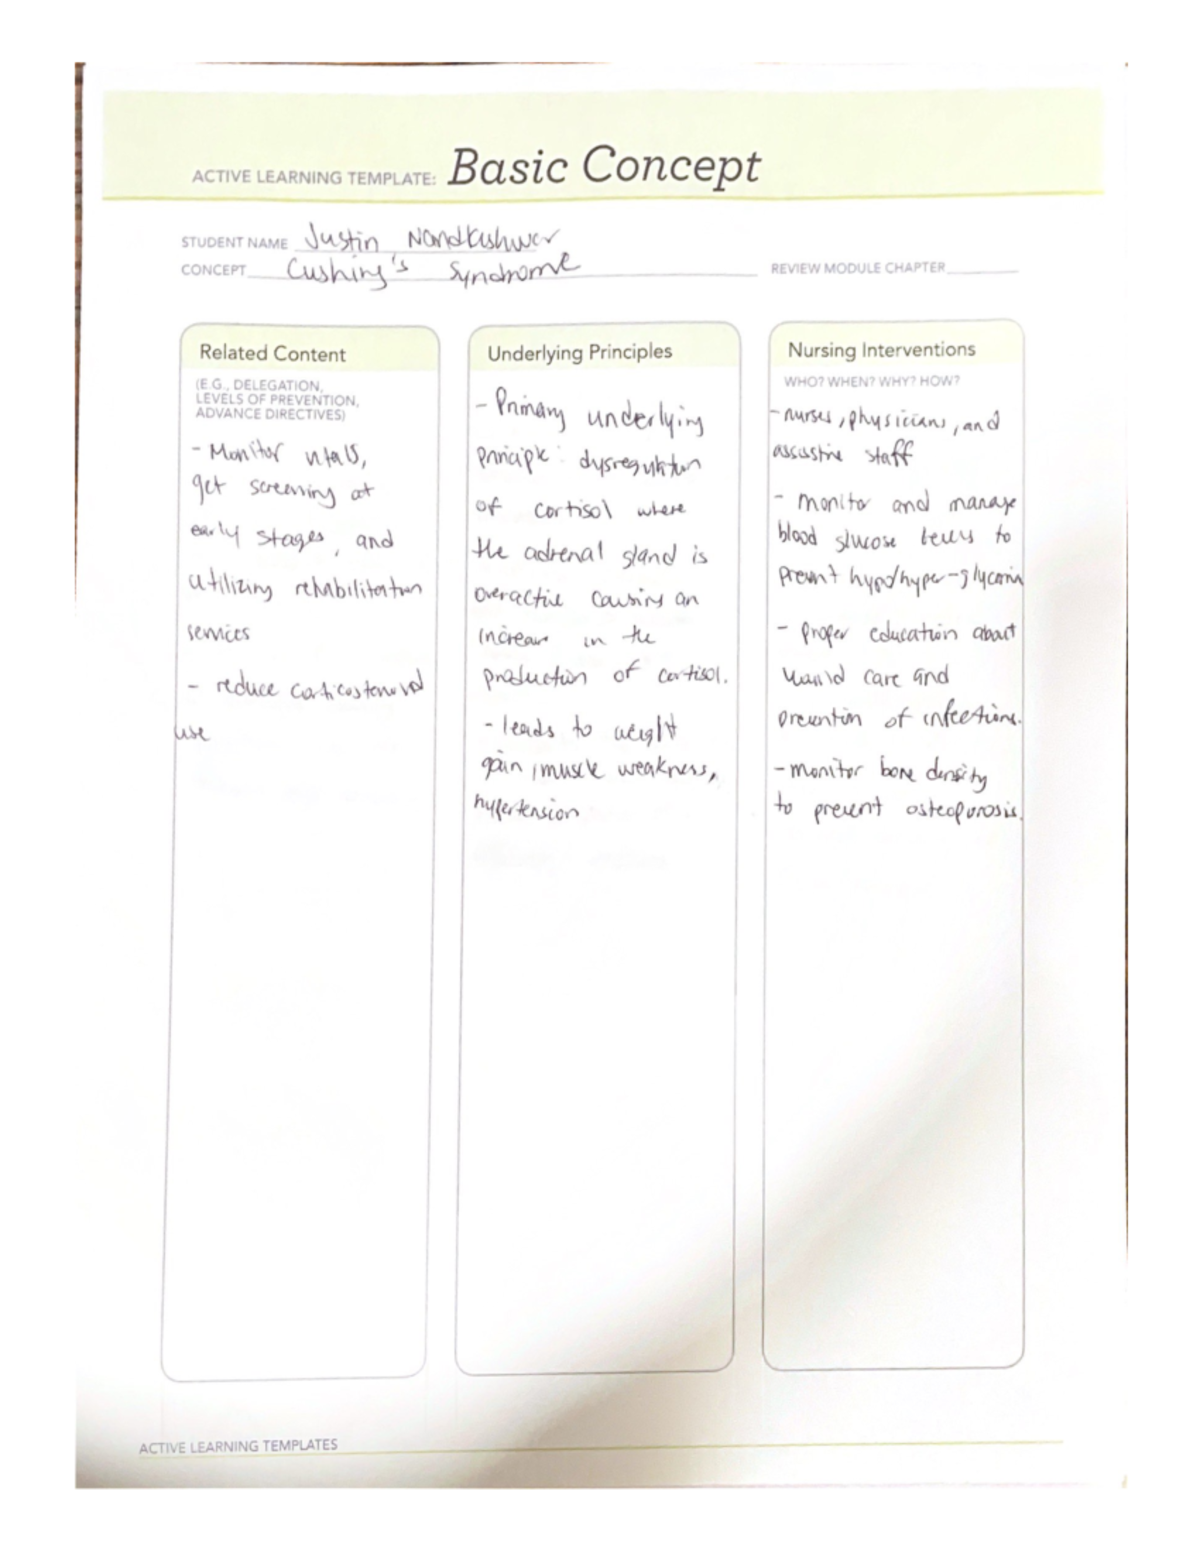 ACTIVE LEARNING TEMPLATE: Basic Concept
STUDENT NAME Justin Nandkishwer
CONCEPT Cushing's Syndrome
REVIEW MODULE CHAPTER
Related Content
(E.G., DELEGATION,
LEVELS OF PREVENTION,
ADVANCE DIRECTIVES)
- Monitor vitals,
get screening at
early stages, and
utilizing rehabilitation
services
- reduce corticosteroid
use
Underlying Principles
- Primary underlying
principle: dysregulation
of cortisol where
the adrenal gland is
overactive causing an
increase in the
production of cortisol.
- leads to weight
gain, muscle weakness,
hypertension
Nursing Interventions
WHO? WHEN? WHY? HOW?
- nurses, physicians, and
assistive staff
- monitor and manage
blood glucose levels to
prevent hypo/hyper-glycemia
- proper education about
wound care and
prevention of infections.
- monitor bone density
to prevent osteoporosis.
ACTIVE LEARNING TEMPLATES